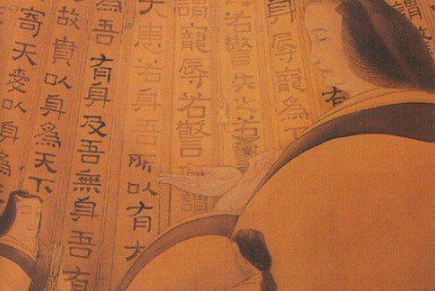 辱寵若警
若警失之若警
謂寵辱若警
大患若身吾所以有大
為吾有身及吾無身吾有
故貴以身為天下
寄天愛以身